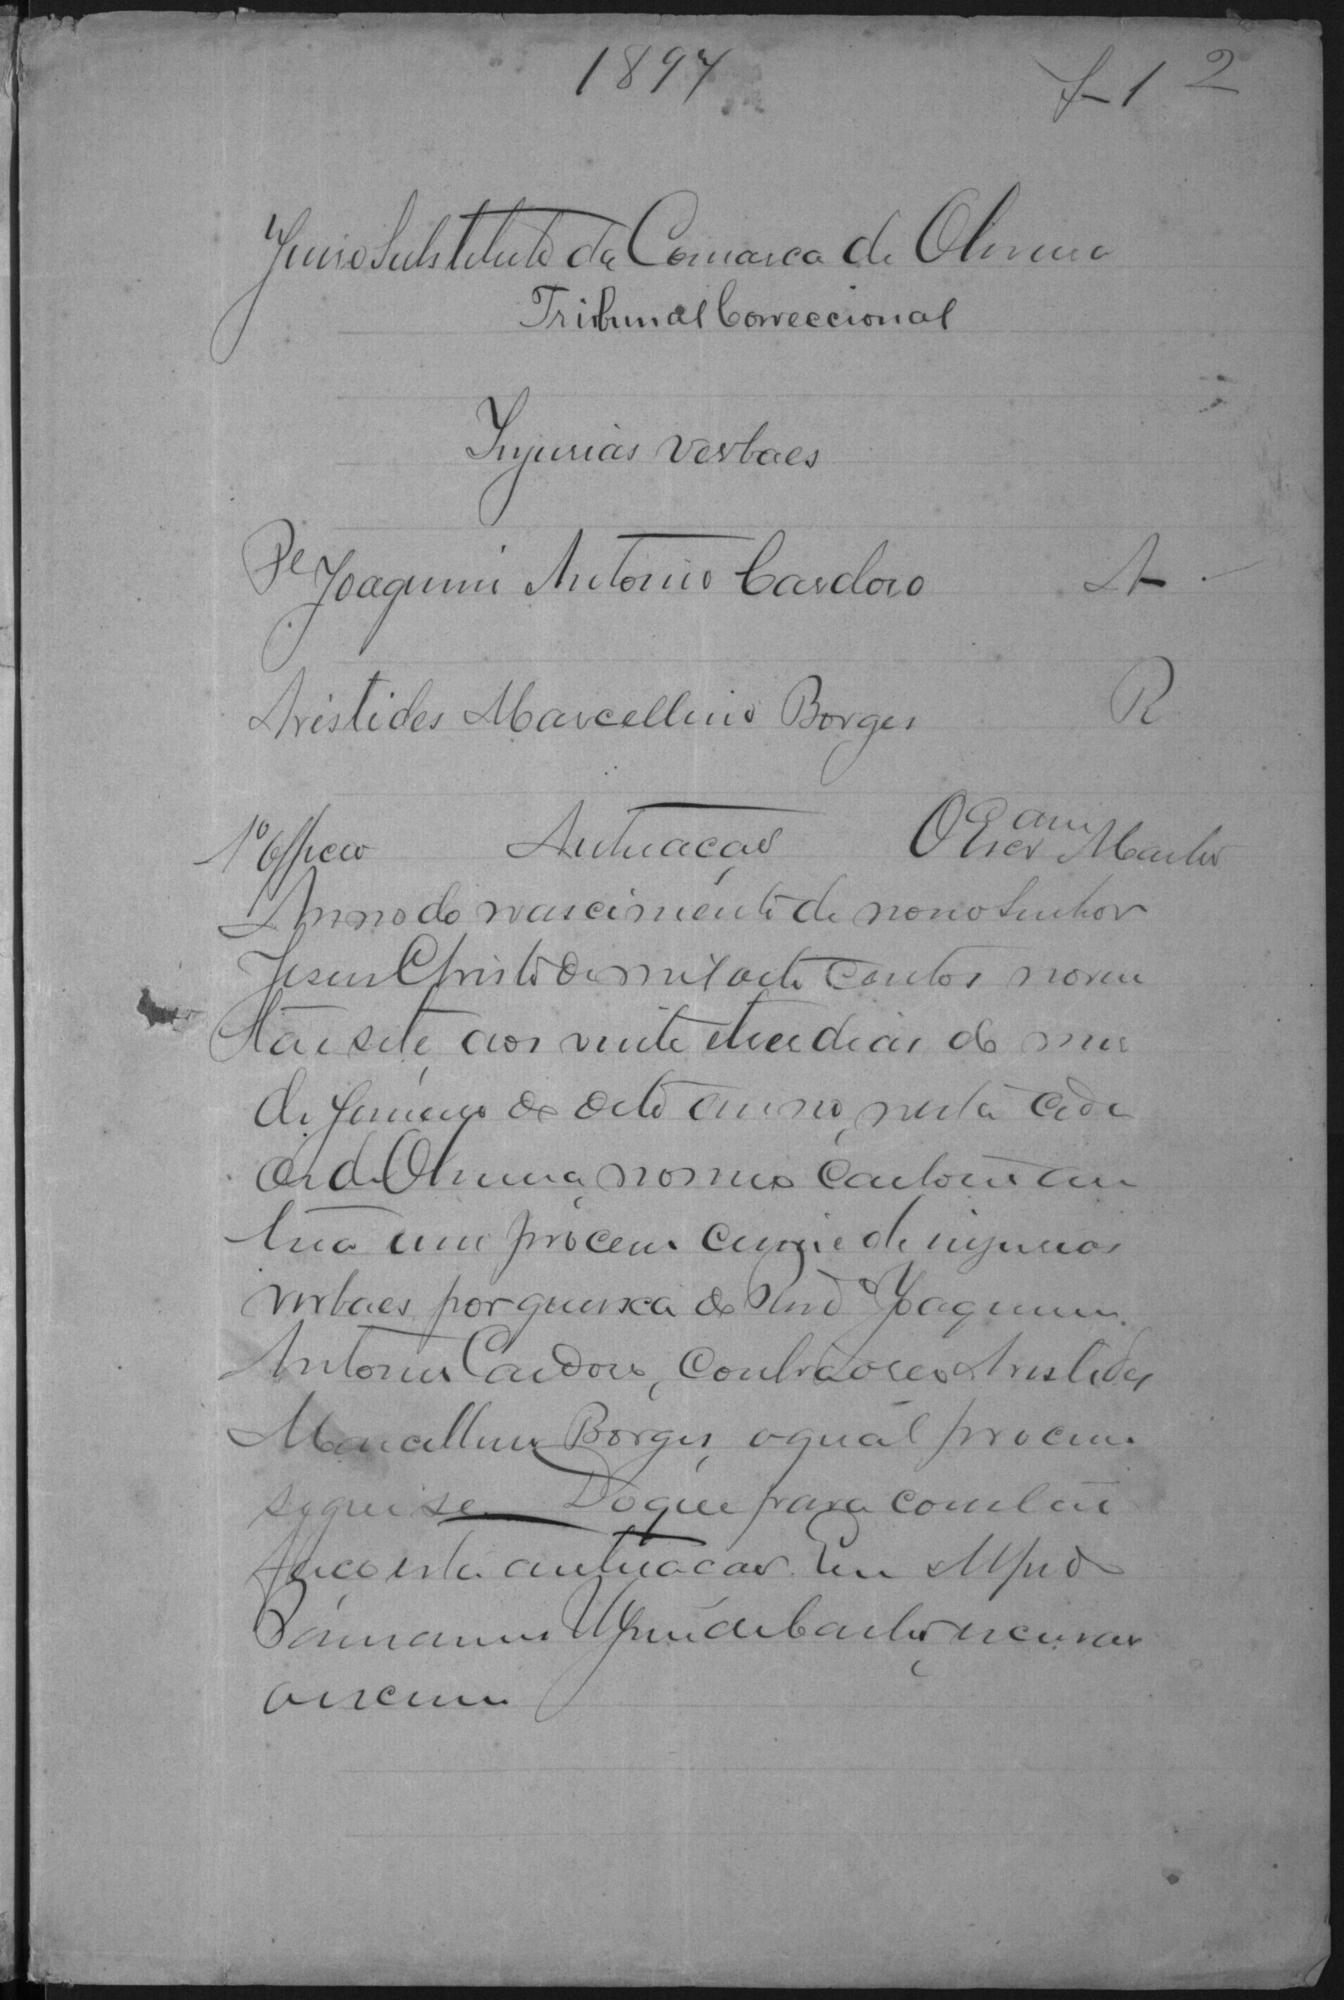 1897 f-1 2
Juiso Substituto da Comarca de Oliveira
Tribunal Correccional
Injurias verbaes
Pe Joaquim Antonio Cardoso A
Aristides Marcellino Borges R
1º Officio Autuação O Escram Castro
Anno do nascimento de nosso Senhor
Jesus Christo de mil oito centos noven
ta e sete, aos vinte e tres dias do mes
de Janeiro do dito anno, nesta cida
de de Oliveira, no meo Cartorio au
tuo um processo crime de injurias
verbaes por queixa do Joaquim
Antonio Cardoso, contra o reo Aristides
Marcellino Borges, o qual processo
segue se. Do que para constar
faço esta autuação. Eu
escrivão
o escrevi